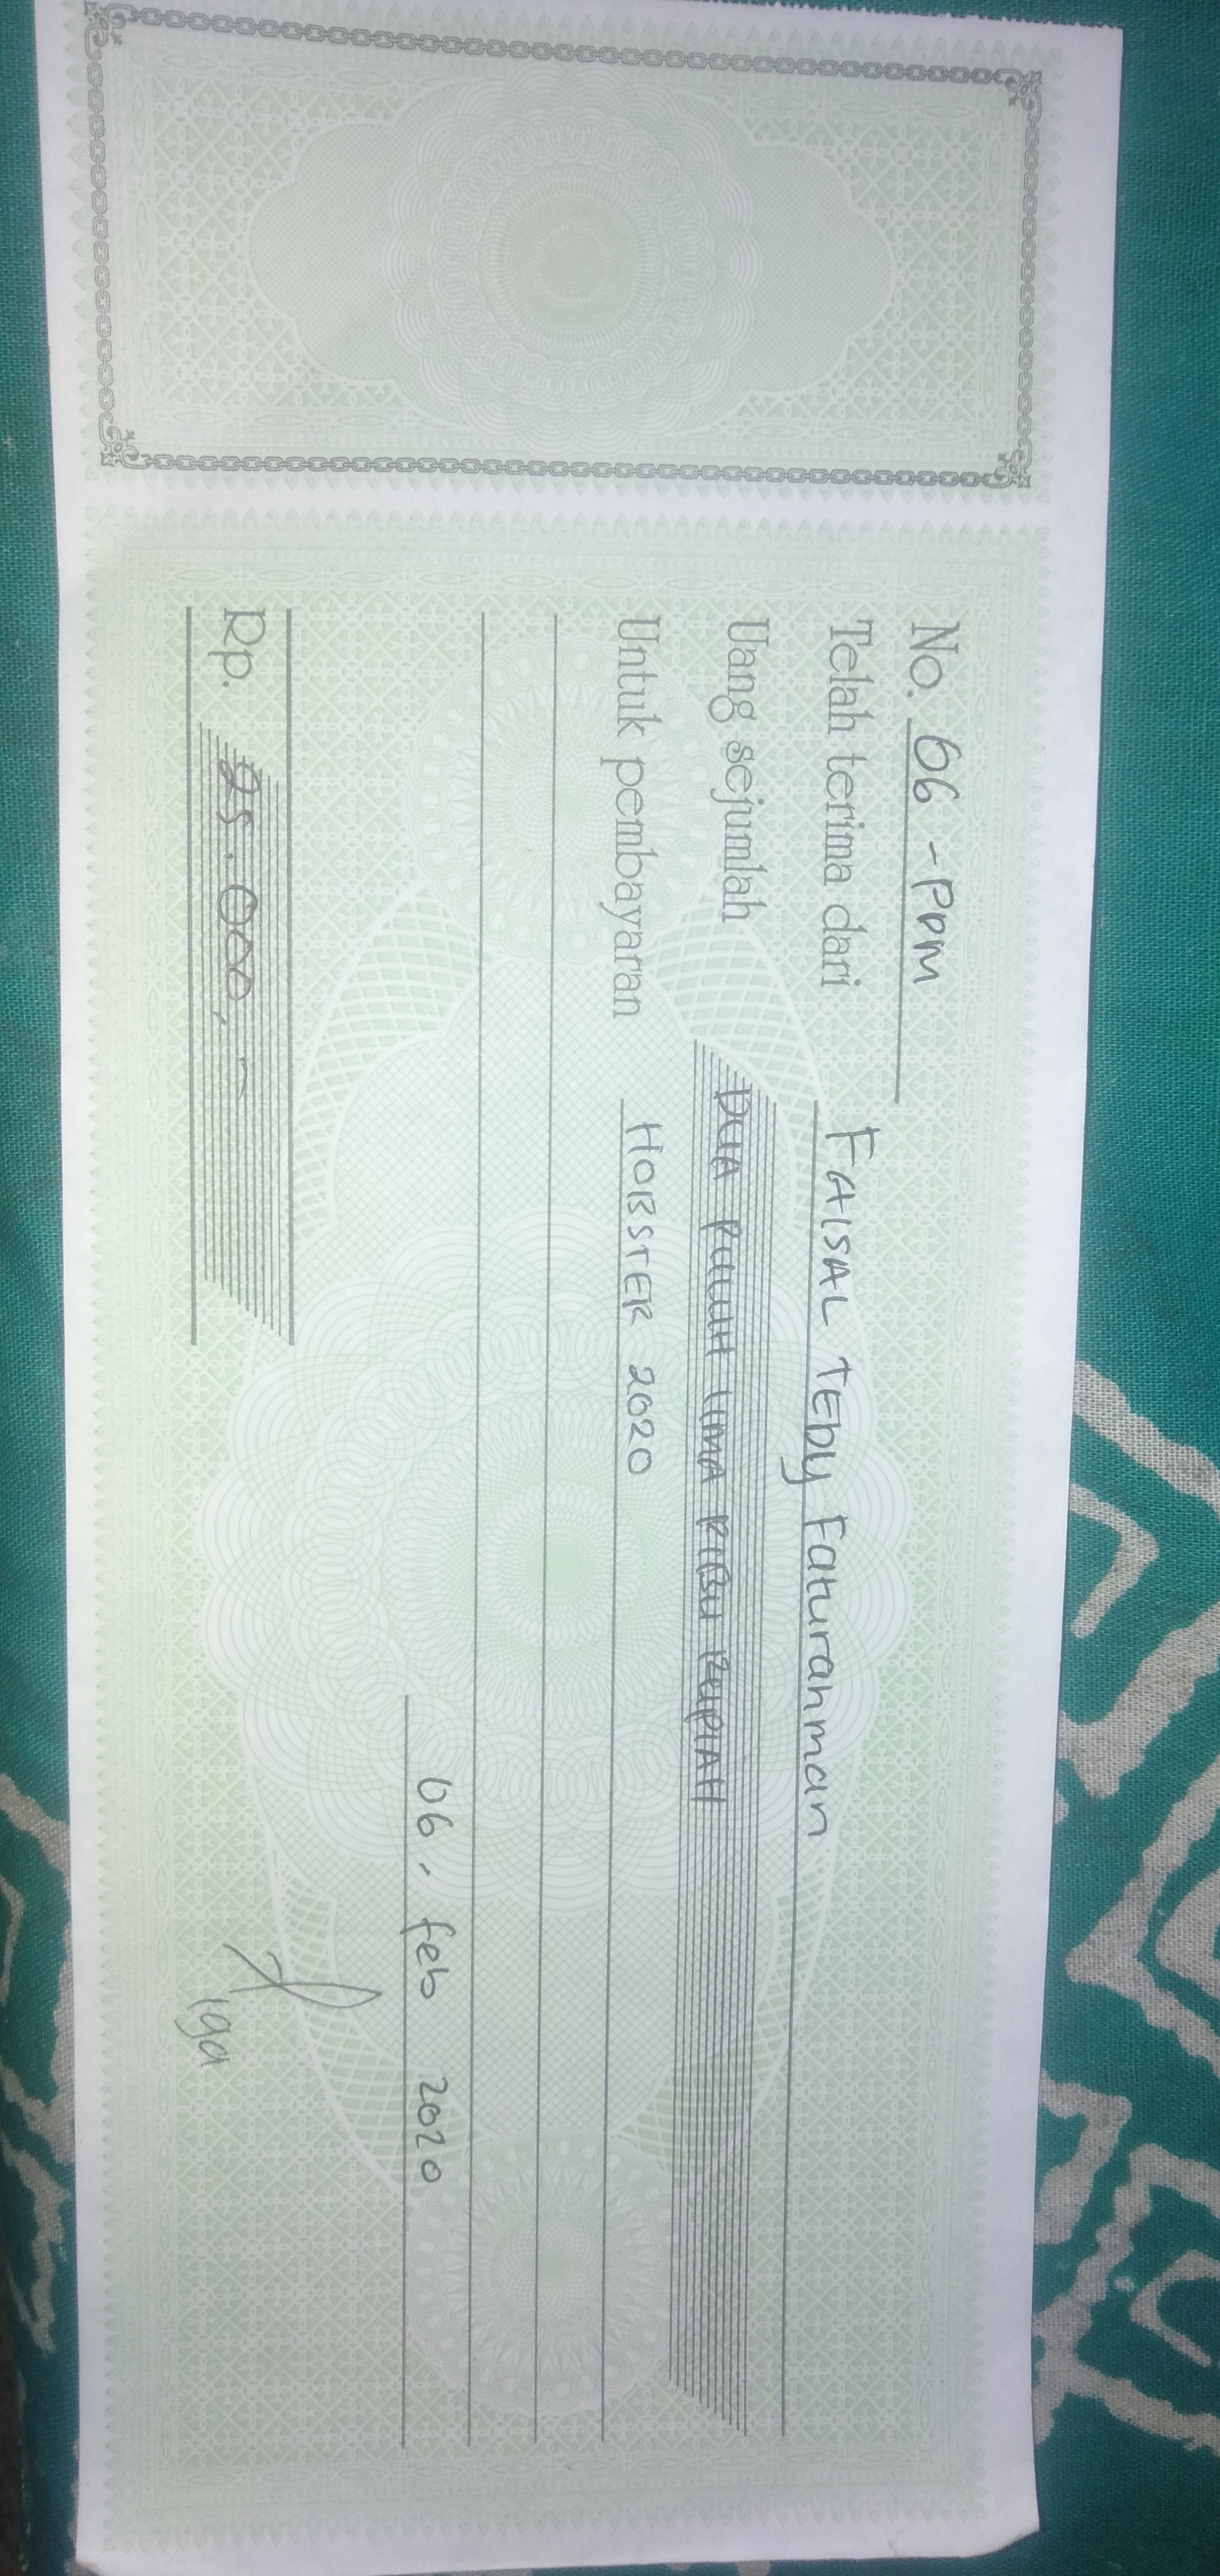 No. 06 - PDM
Telah terima dari FAISAL TEDY Faturahman
Uang sejumlah DUA PULUH LIMA RIBU RUPIAH
Untuk pembayaran HOBSTER 2020
06, feb 2020
Rp. 25.000,-
Iga